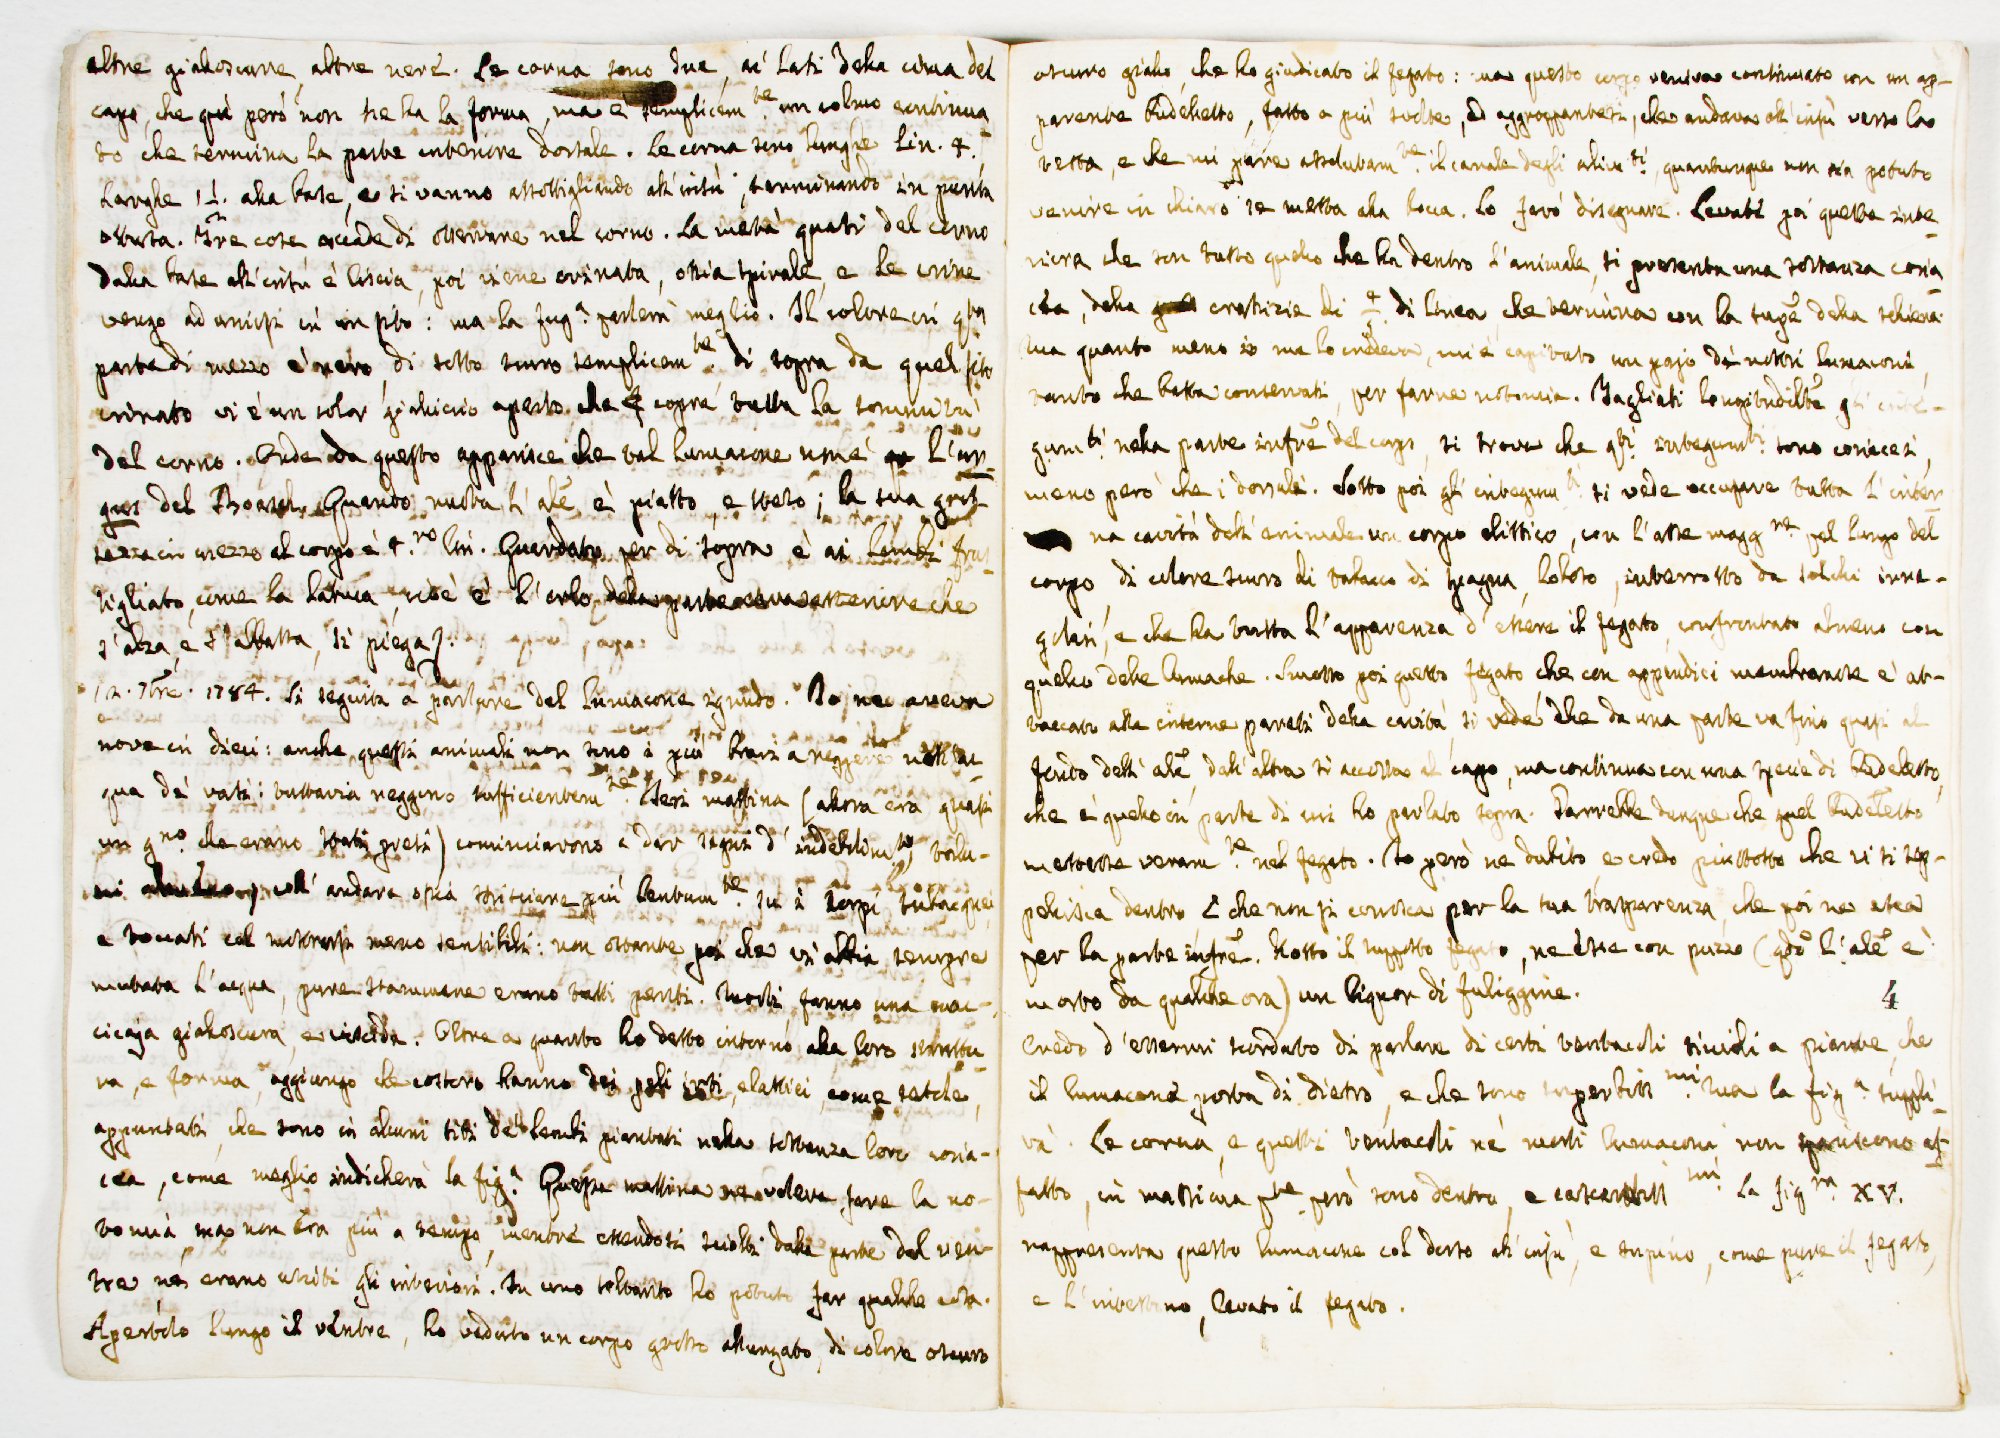 altre gialloscure, altre nere. Le corna sono due, ai lati della cima del
capo, che quì però non ne ha la forma, ma è semplicem.te un colmo continua-
to che termina la parte anteriore dorsale. Le corna sono lunghe lin. 4.
larghe 1 1/2. alla base, e si vanno assottigliando all'insù, terminando in punta
ottusa. Tre cose accade di osservare nel corno. La metà quasi del corno
dalla base all'insù è liscia, poi viene crinata, ossia spirale, e le crine
vengo ad unirsi in un pto: ma la fug.a parlerà meglio. Il colore in qta
parte di mezzo è nero, di sotto scuro semplicem.te di sopra da quel sito
crinato vi è un color gialliccio aperto che copre tutta la sommità
del corno. Onde da questo apparisce che tal lumacone non è l'ar-
gus del Boadsch. Quando nuota l'ale è piatto, e steso; la sua gros-
sezza in mezzo al corpo è 4.ro lin. Guardato per di sopra è ai lembi fras-
tigliato, come la lattuca, cioè è l'orlo della parte esteriore che
s'alza, e s'abbassa, si piega].
12. 7bre. 1784. Si seguita a parlare del lumacone ignudo. Io ne aveva
nove in dieci: anche questi animali non sono i più bravi a reggere nell'ac-
qua de' vasi: tuttavia reggono sufficientem.te Jeri mattina (allora era quasi
un g.no che erano stati presi) cominciarono a dar segni d'indebolim.to
coll' andare ossia strisciare più lentam.te su i corpi subacquei
e toccati col mostrarsi meno sensibili: non ostante poi che vi abbia sempre
mutata l'acqua, pure stammane erano tutti periti. Morti fanno una muc-
cicaja gialloscura, e viscida. Oltre a quanto ho detto intorno alla loro struttu-
ra, e forma, aggiungo che costoro hanno dei peli irti, elastici, come setole,
appuntati, che sono in alcuni siti de' lembi piantati nella sostanza loro coria-
cea, come meglio indicherà la fig.a Questa mattina voleva fare la no-
tomia ma non era più a tempo, mentre essendosi sciolti dalla parte del ven-
tre ne erano usciti gli interiori. In uno soltanto ho potuto far qualche cosa.
Apertolo lungo il ventre, ho veduto un corpo grosso allungato, di colore oscuro
oscuro giallo, che ho giudicato il fegato: ma questo corpo veniva continuato con un ap-
parente budelletto, fatto a più svolte, ed aggroppantesi, che andava all'insù verso la
testa, e che mi pare assolutam.te il canale degli alim.ti, quantunque non sia potuto
venire in chiaro se metta alla bocca. Lo farò disegnare. Levati poi queste inte-
riora che son tutto quello che ha dentro l'animale, si presenta una sostanza coria-
cea, della crassizie di di linea, che termina con la supe della schiena
Ma quanto meno io me lo credeva, mi è capitato un pajo di nostri lumaconi,
tanto che basta conservati, per farne notomia. Tagliati longitudilte gl'inte-
gum.ti nella parte infre del corpo, si trova che qti integum.ti sono coriacei,
meno però che i dorsali. Sotto poi gl'integum.ti si vede occupare tutta l'inter-
na cavità dell'animale un corpo elittico, con l'asse magg.re pel lungo del
corpo di colore scuro di tabacco di spagna, loboso, interrotto da solchi irre-
golari, e che ha tutta l'apparenza d'essere il fegato, confrontato almeno con
quello delle lumache. Smosso poi questo fegato che con appendici membranose è at-
taccato alle interne pareti della cavità, si vede che da una parte va fino quasi al
fondo dell'ale, dall'altra si accosta al capo, ma continua con una specie di budelletto,
che è quello in parte di cui ho parlato sopra. Parrebbe dunque che quel budelletto
mettesse veram.te nel fegato. Io però ne dubito, e credo piuttosto che vi si sep-
pellisca dentro E che non si conosca per la sua trasparenza, che poi ne esca
per la parte infre. Rotto il supposto fegato, ne esce con puzzo (qdo l'ale è
morto da qualche ora) un liquor di fuliggine.
4
Credo d'essermi scordato di parlare di certi tentacoli simili a piante, che
il lumacone porta di dietro, e che sono Ma la fig.a suppli-
rà. Le corna, e questi tentacoli ne' morti lumaconi non spariscono af-
fatto, in massima pte però sono dentro, e La fig.ra XV.
rappresenta questo lumacone col dorso all'insù, e supino, come pure il fegato,
e l'intestino, levato il fegato.